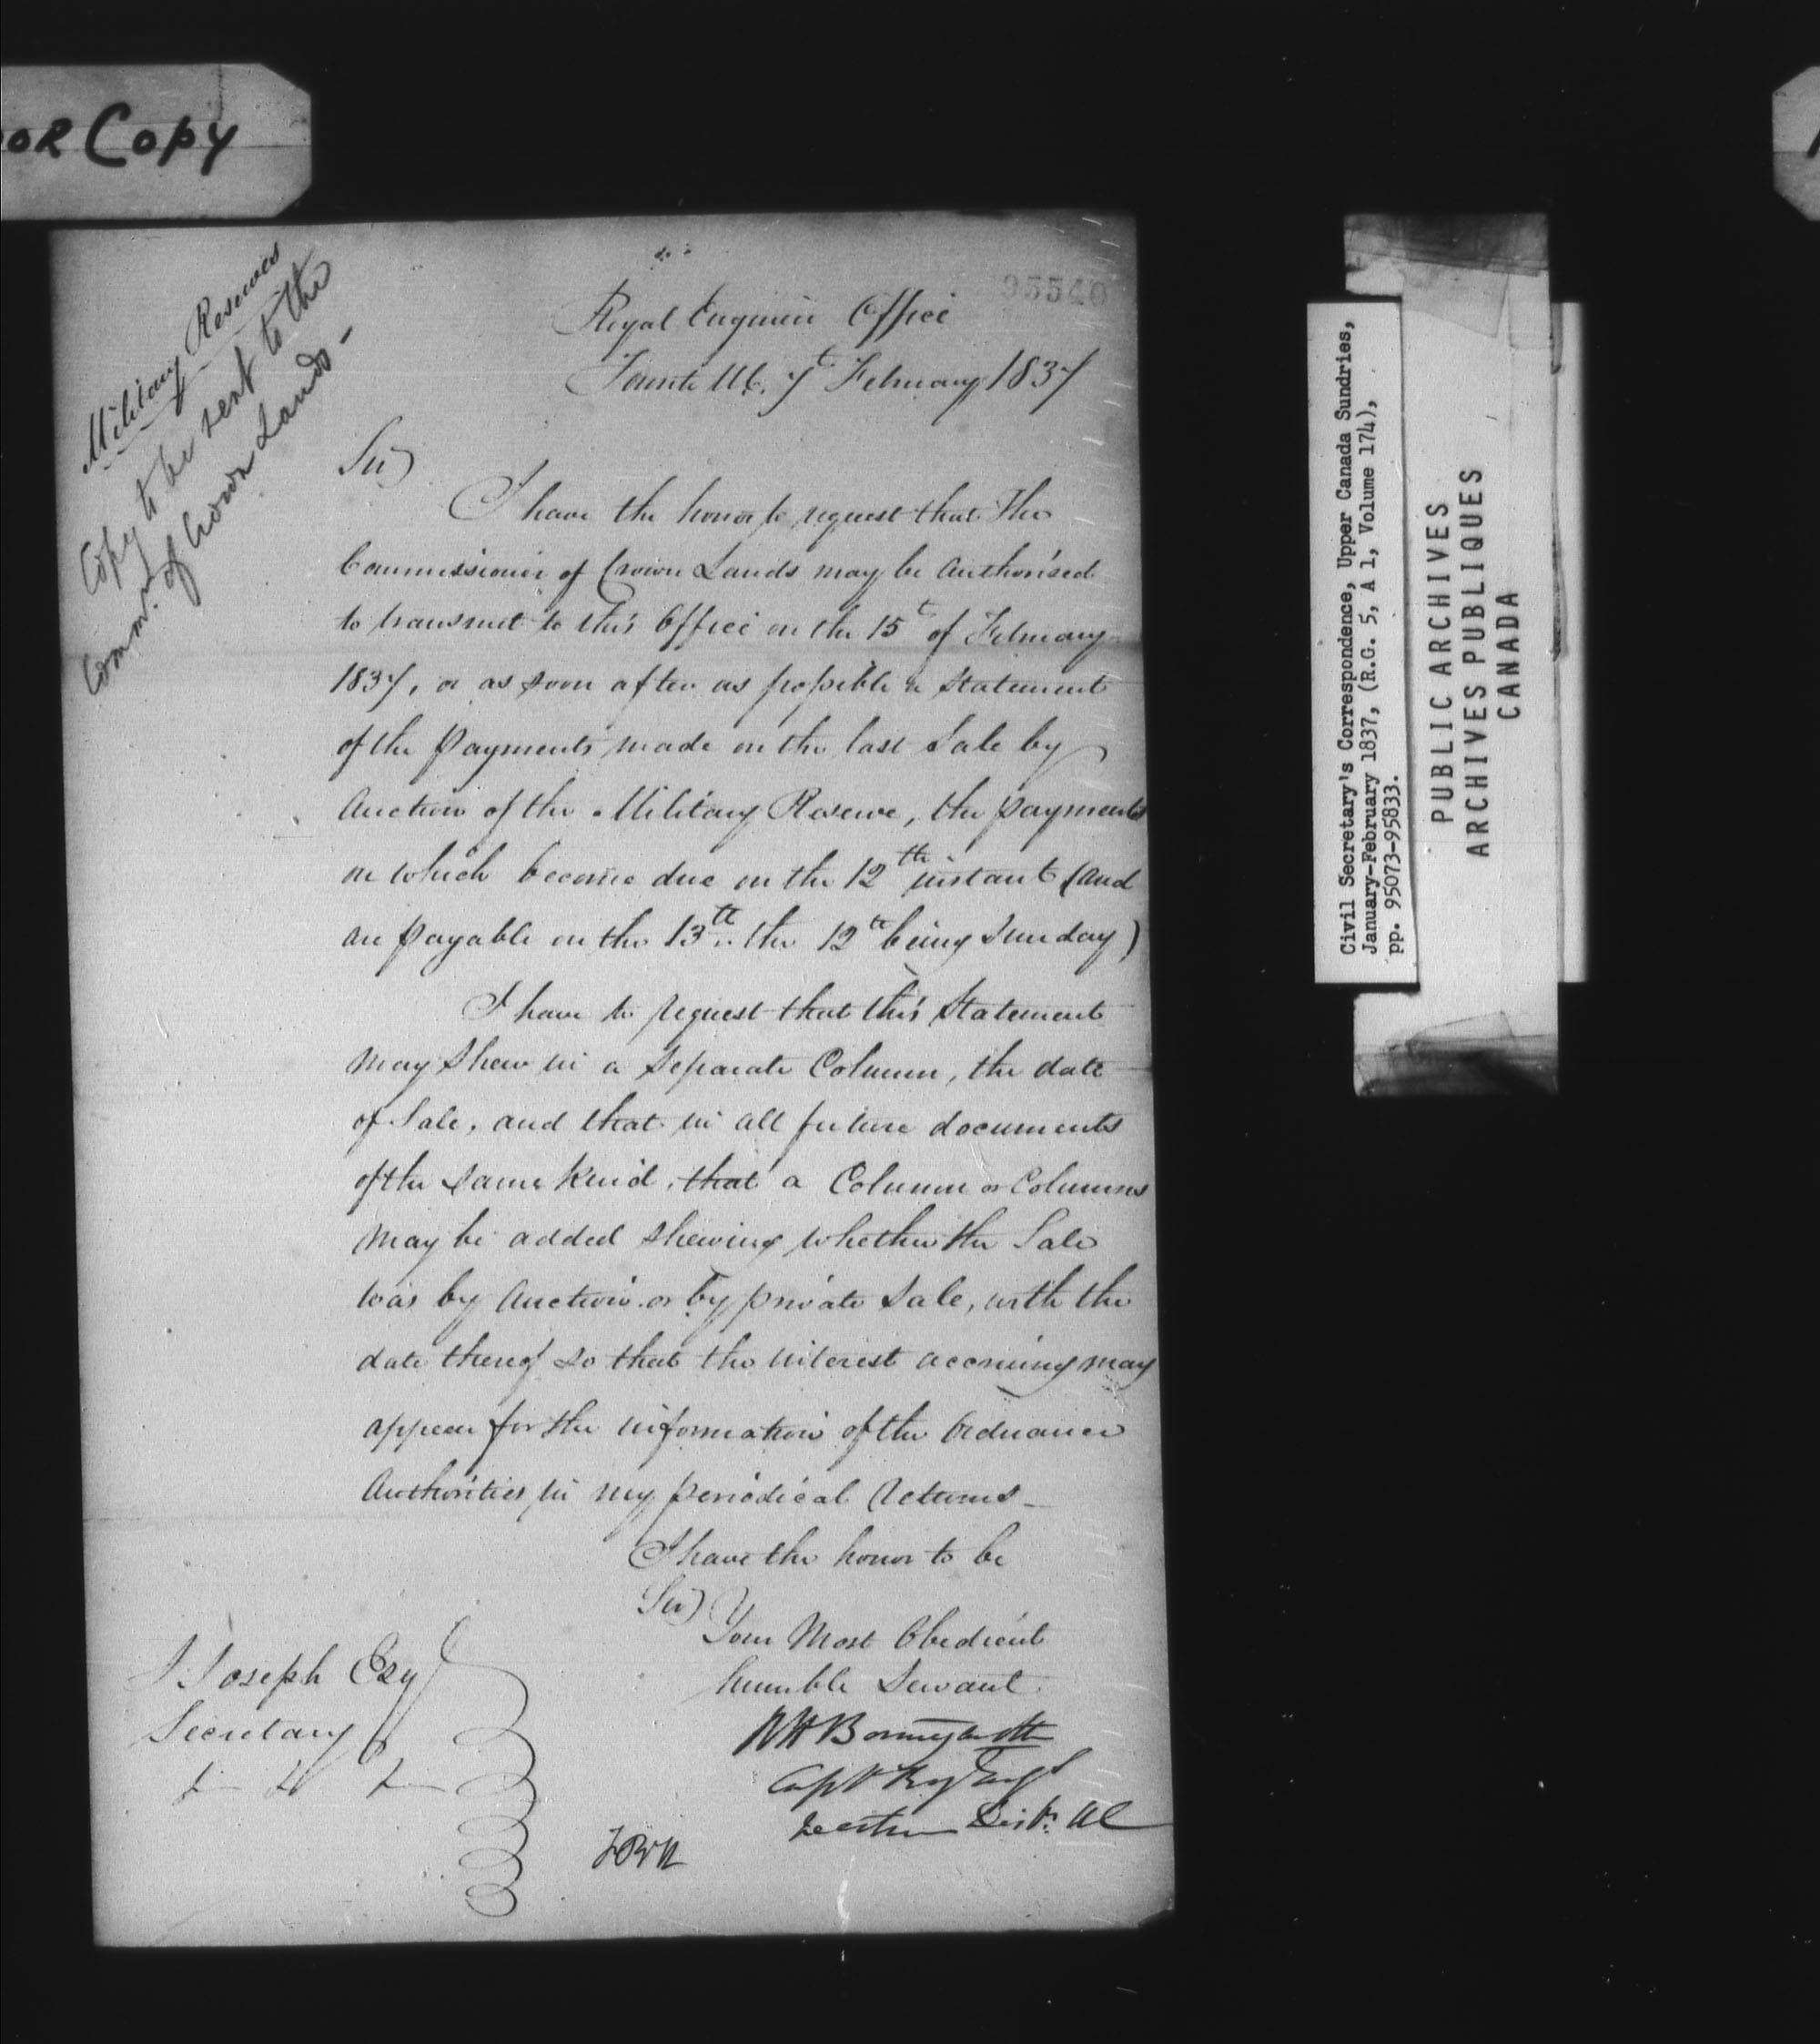 OR Copy
95540
Military Reserves
Copy to be sent to the
Commr. of Crown Lands -
Royal Engineer Office
Toronto U.C. 7t February 1837
Sir
I have the honor to request that the
Commissioner of Crown Lands may be Authorised
to transmit to this Office on the 15t of February
1837, or as soon after as possible a Statement
of the Payments made on the last Sale by
Auction of the Military Reserve, the payments
on which become due on the 12th instant (and
are payable on the 13th.. the 12th being Sunday)
I have to request that this Statement
may shew in a separate Column, the date
of Sale, and that in all future documents
of the same kind, that a Column or Columns
may be added shewing whether the Sale
was by Auction or by private Sale, with the
date thereof so that the interest accruing may
appear for the information of the Ordnance
Authorities in my periodical Returns _
I have the honor to be
Sir
Your Most Obedient
humble Servant
RH Bonnycastle
Capt Roy Engs
Western Distr. UC
J Joseph Esq
Secretary
Civil Secretary's Correspondence, Upper Canada Sundries,
January-February 1837, (R.G. 5, A 1, Volume 174),
pp. 95073-95833.
PUBLIC ARCHIVES
ARCHIVES PUBLIQUES
CANADA